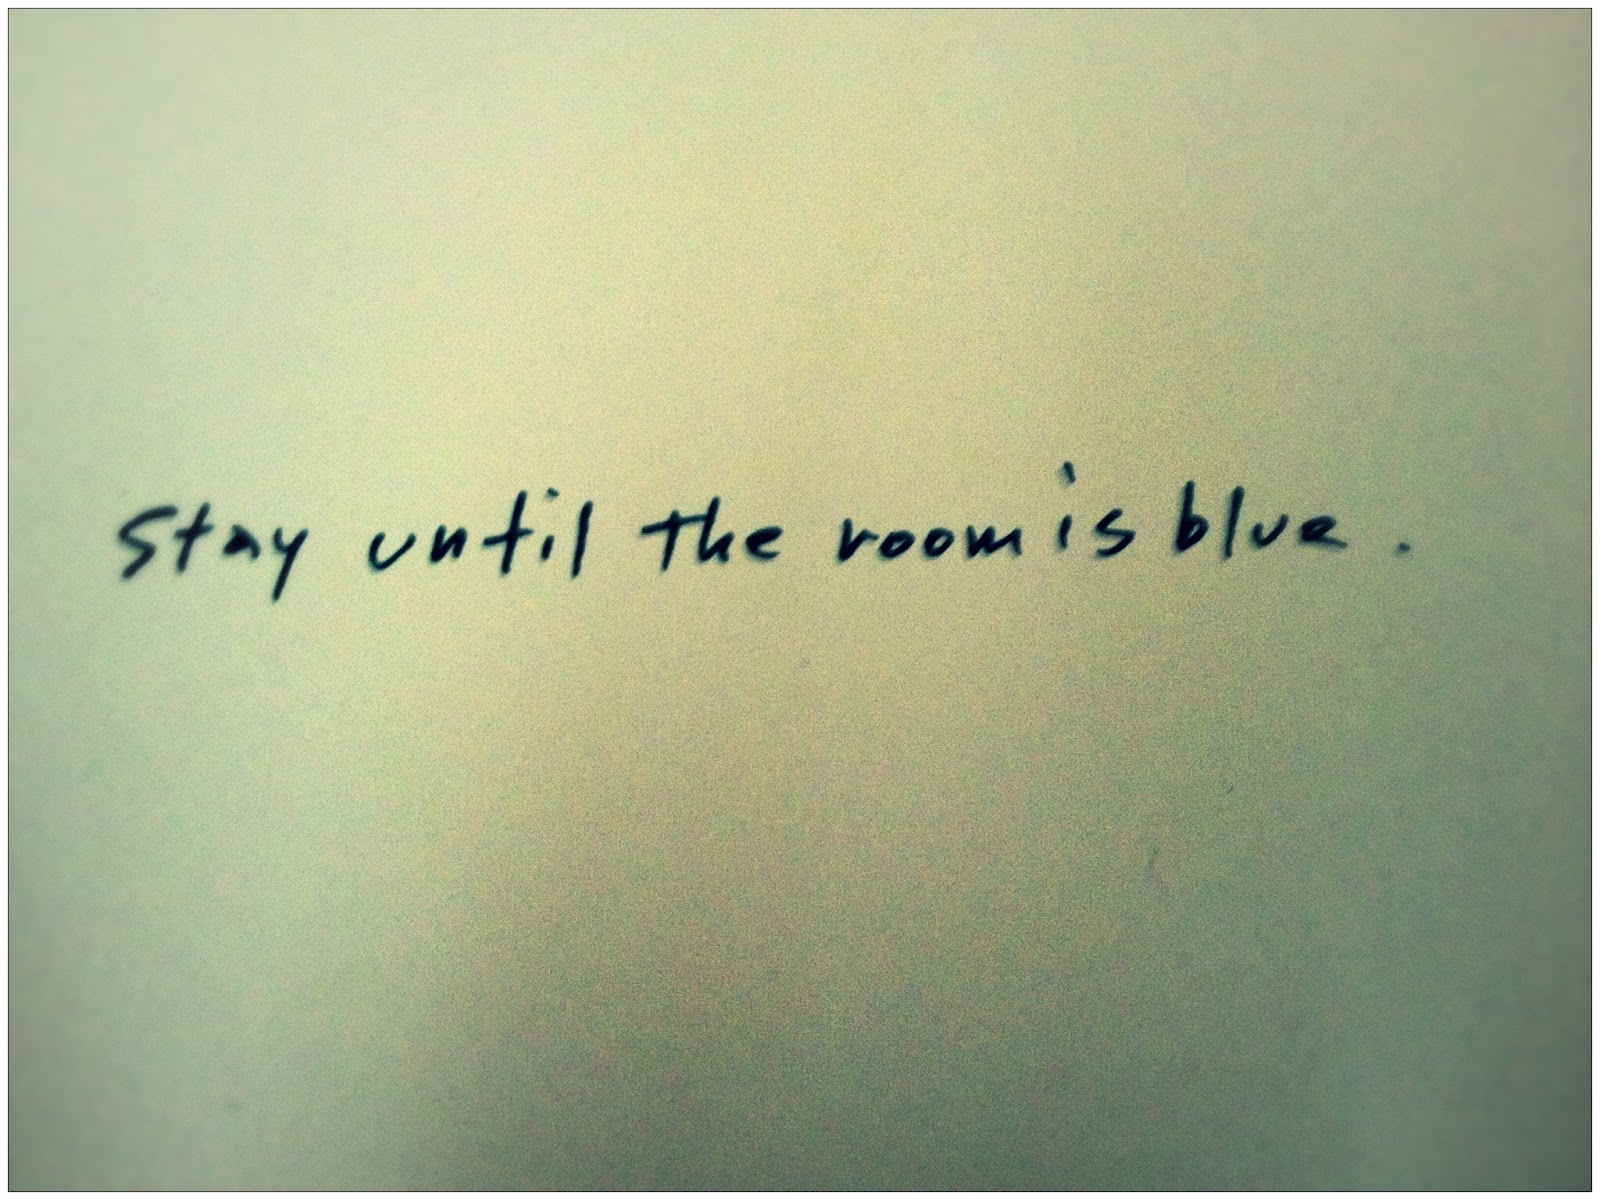 Stay until the room is blue.